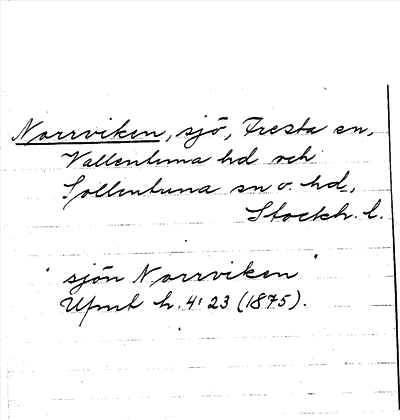 Norrviken, sjö, Fresta sn,
Vallentuna hd och
Sollentuna sn o. hd,
Stockh. l.
sjön Norrviken
Upmt h. 4: 23 (1875).